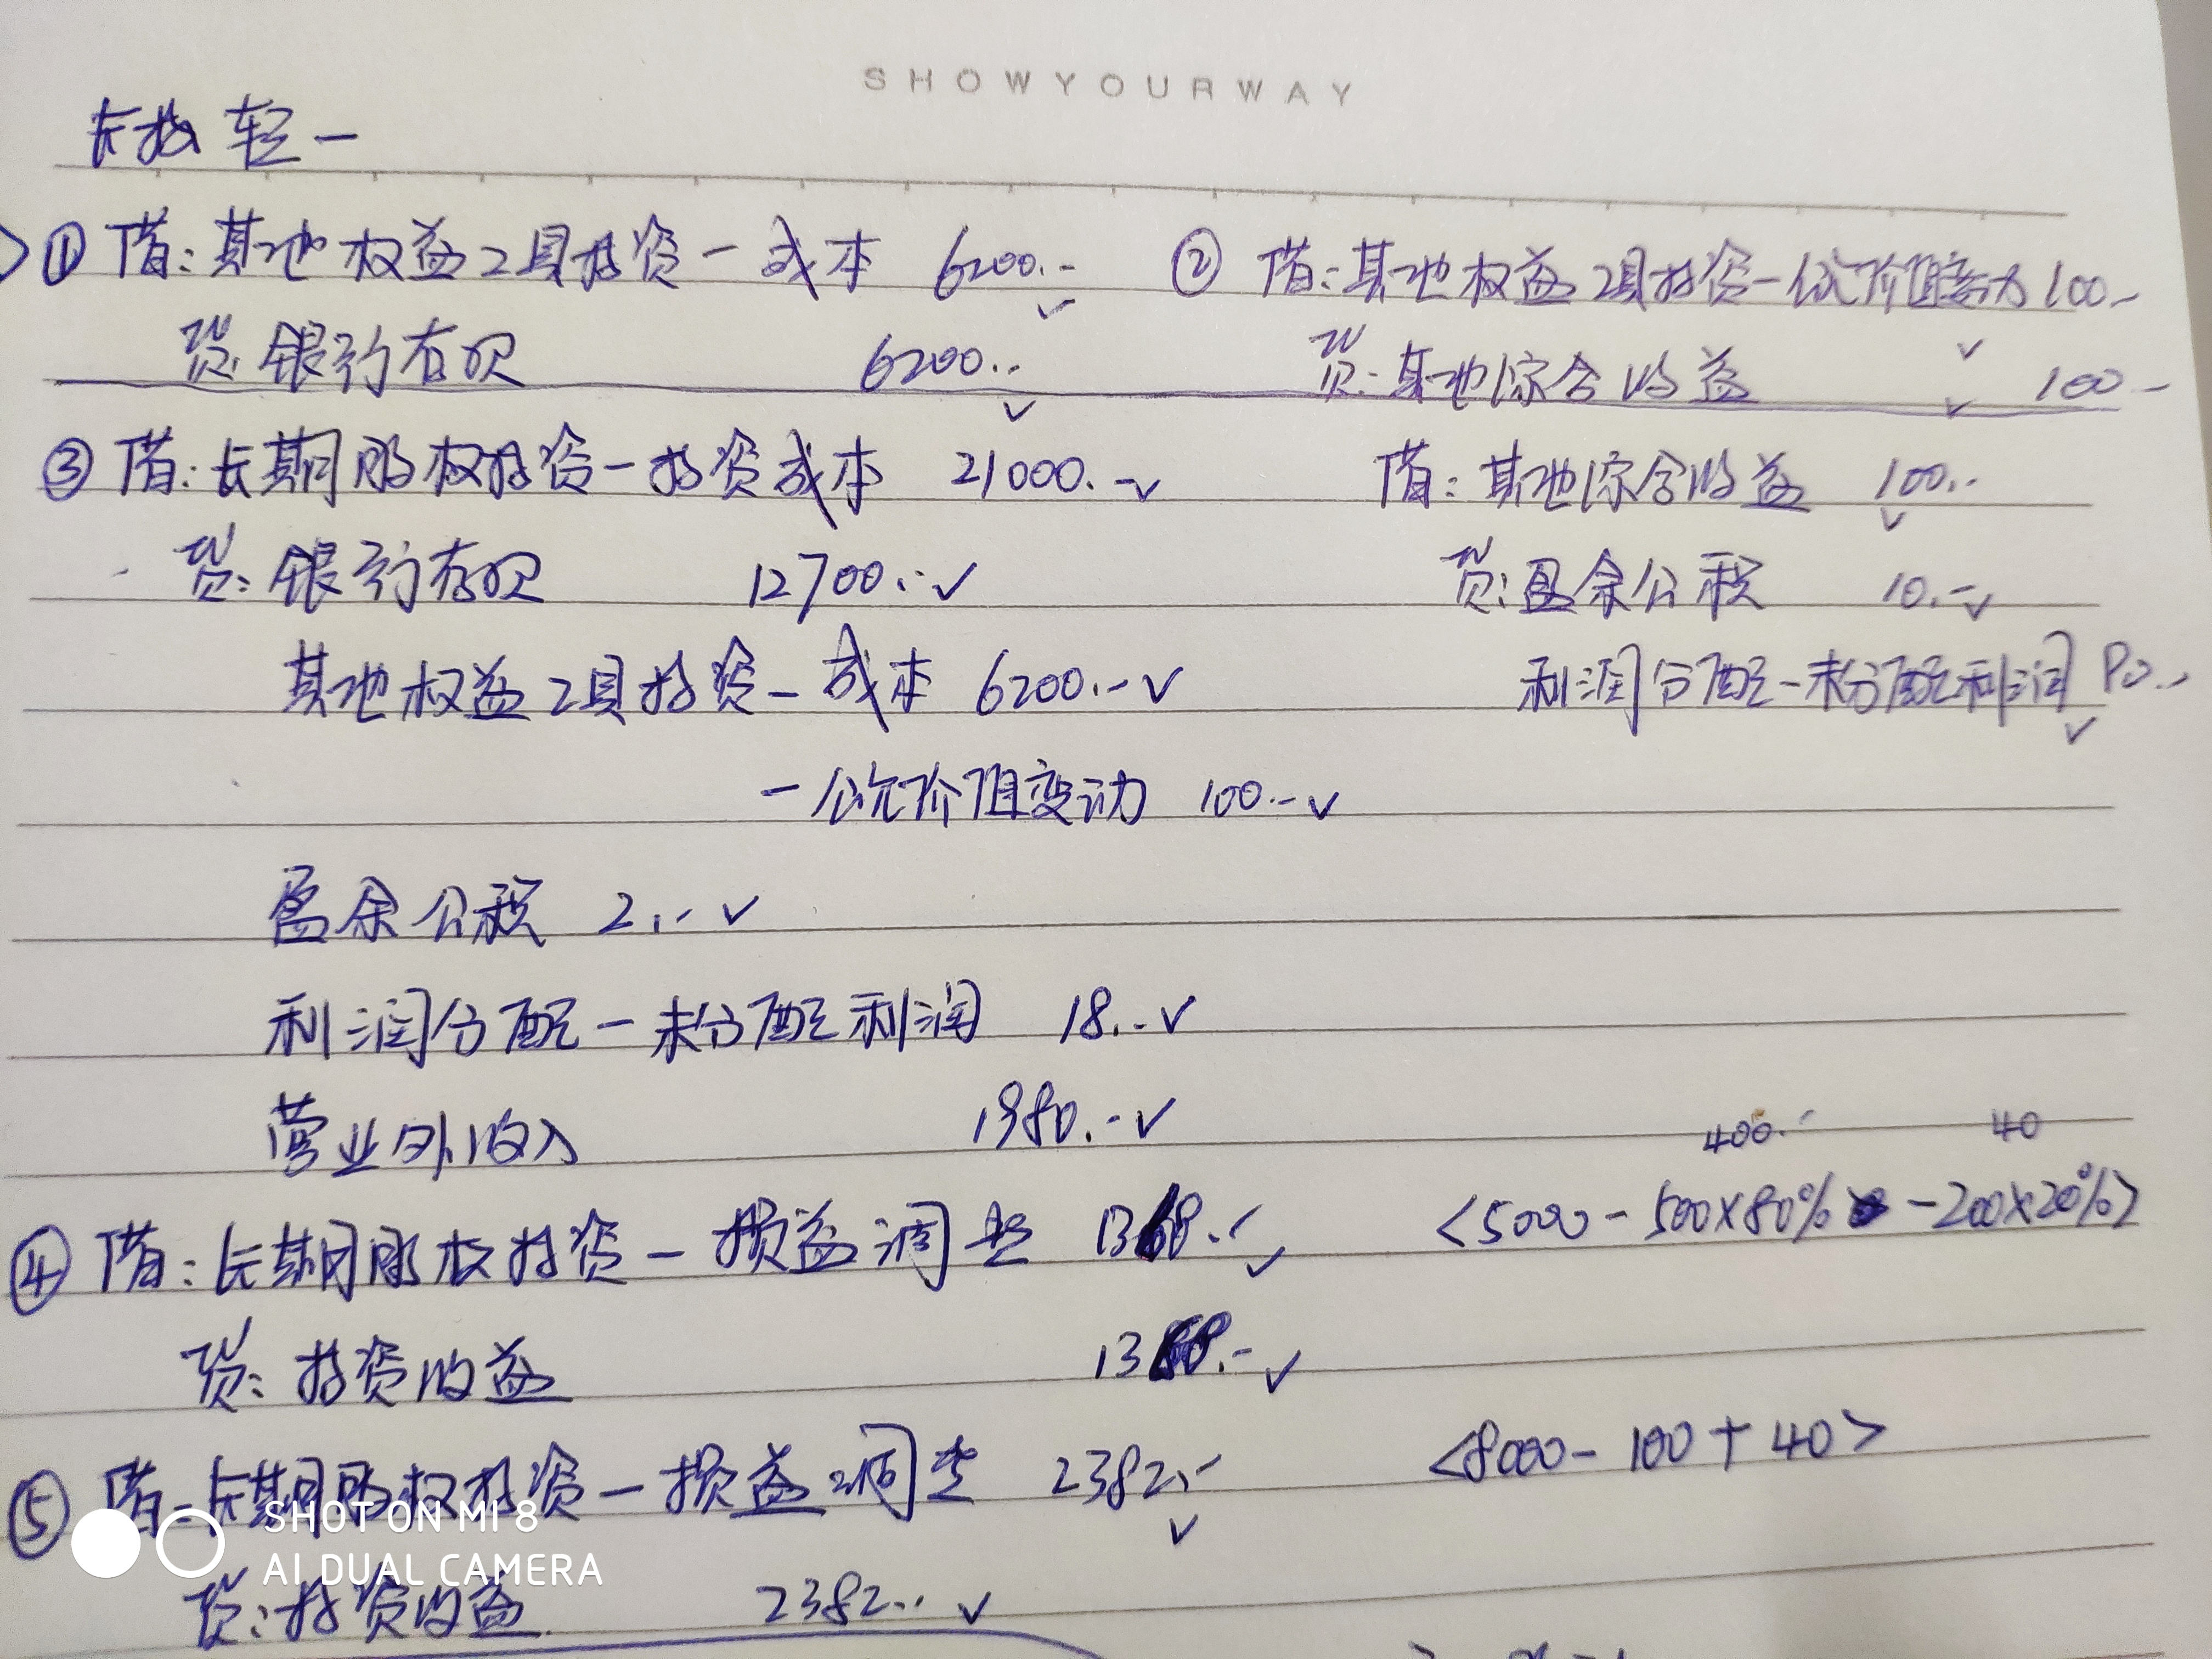 SHOWYOURWAY
长投 轻一
① 借:其他权益工具投资-成本 6200.-
贷:银行存款 6200.-
② 借:其他权益工具投资-公允价值变动 100.-
贷:其他综合收益 100.-
③ 借:长期股权投资-投资成本 21000.-
贷:银行存款 12700.-
其他权益工具投资-成本 6200.-
-公允价值变动 100.-
盈余公积 2.-
利润分配-未分配利润 18.-
营业外收入 1980.-
借:其他综合收益 100.-
贷:盈余公积 10.-
利润分配-未分配利润 90.-
400.- 40
④ 借:长期股权投资-损益调整 1368.- <5000-500×80%-200×20%>
贷:投资收益 1368.-
⑤ 借:长期股权投资-损益调整 2382.- <8000-100+40>
贷:投资收益 2382.-
SHOT ON MI 8
AI DUAL CAMERA